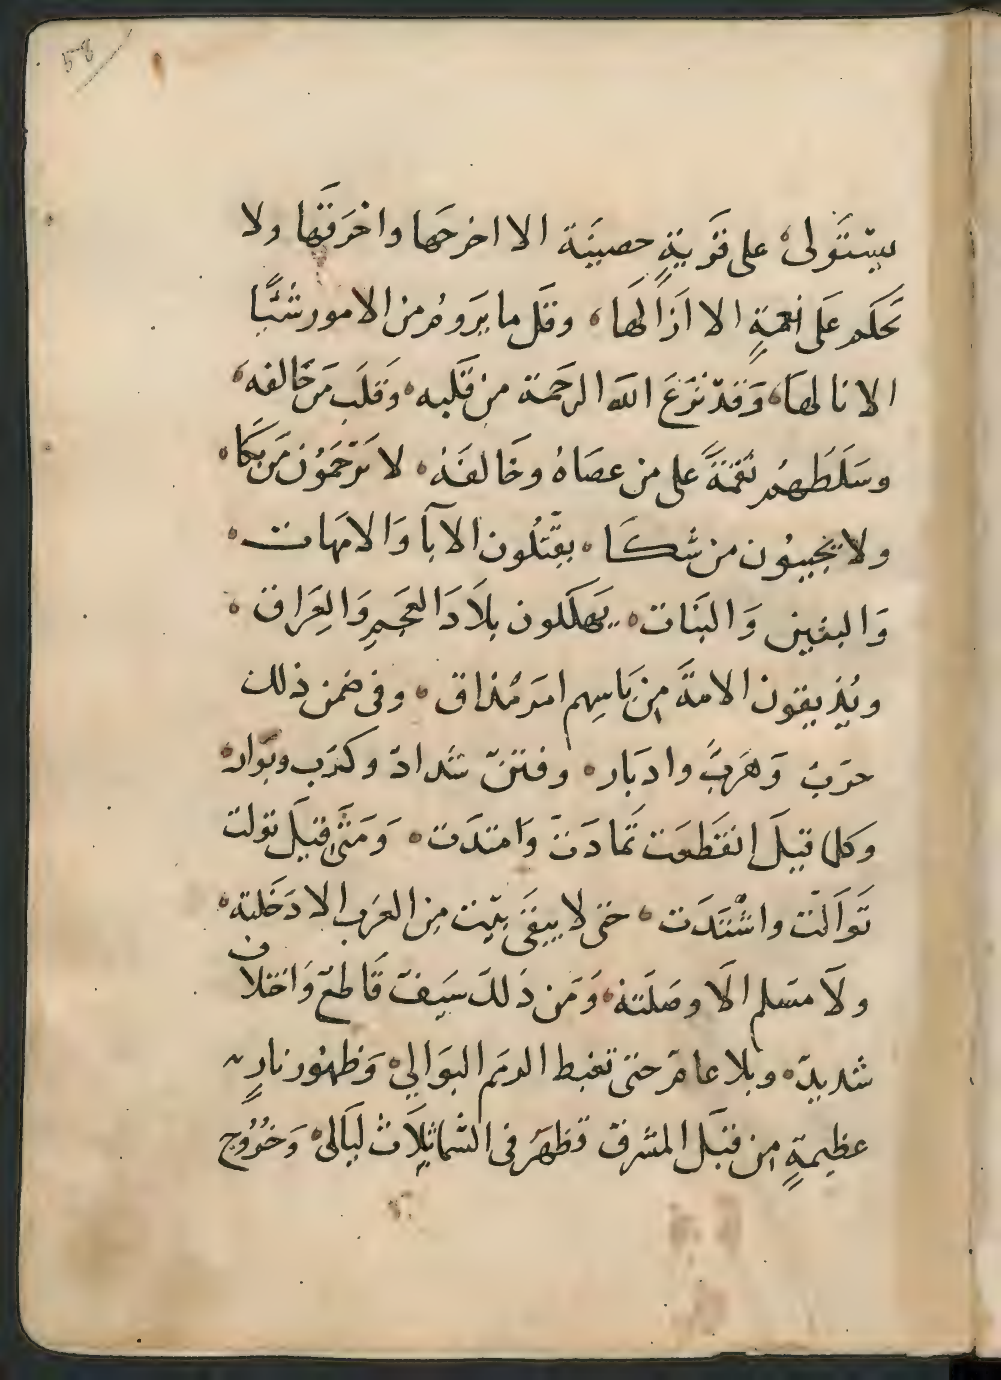 58
يستولى على قرية حصينة الا اخرجها واحرقها ولا
تحكم على نعمة الا ازالها، وقل ما يروم من الامور شيا
الا نالها، وقد نزع الله الرحمة من قلبه، وقلب من خالفه،
وسلطهم نقمة على من عصاه وخالفه، لا يرحمون من بكا،
ولا يجيبون من شكا، يقتلون الابا والامهات،
والبنين والبنات، يهلكون بلاد العجم والعراق،
ويذيقون الامة من باسهم امر مذاق، وفى ضمن ذلك
حرب وهرب وادبار، وفتن شداد وكرب وبوار،
وكلما قيل انقطعت تمادت وامتدت، ومتى قيل تولت
توالت واشتدت، حتى لا يبقى بيت من العرب الا دخلته،
ولا مسلم الا وصلته، ومن ذلك سيف قاطع واختلاف
شديد، وبلا عام حتى تغبط الرمم البوالي، وظهور نار
عظيمة من قبل المشرق تظهر فى السما ثلاث ليالى، وخروج